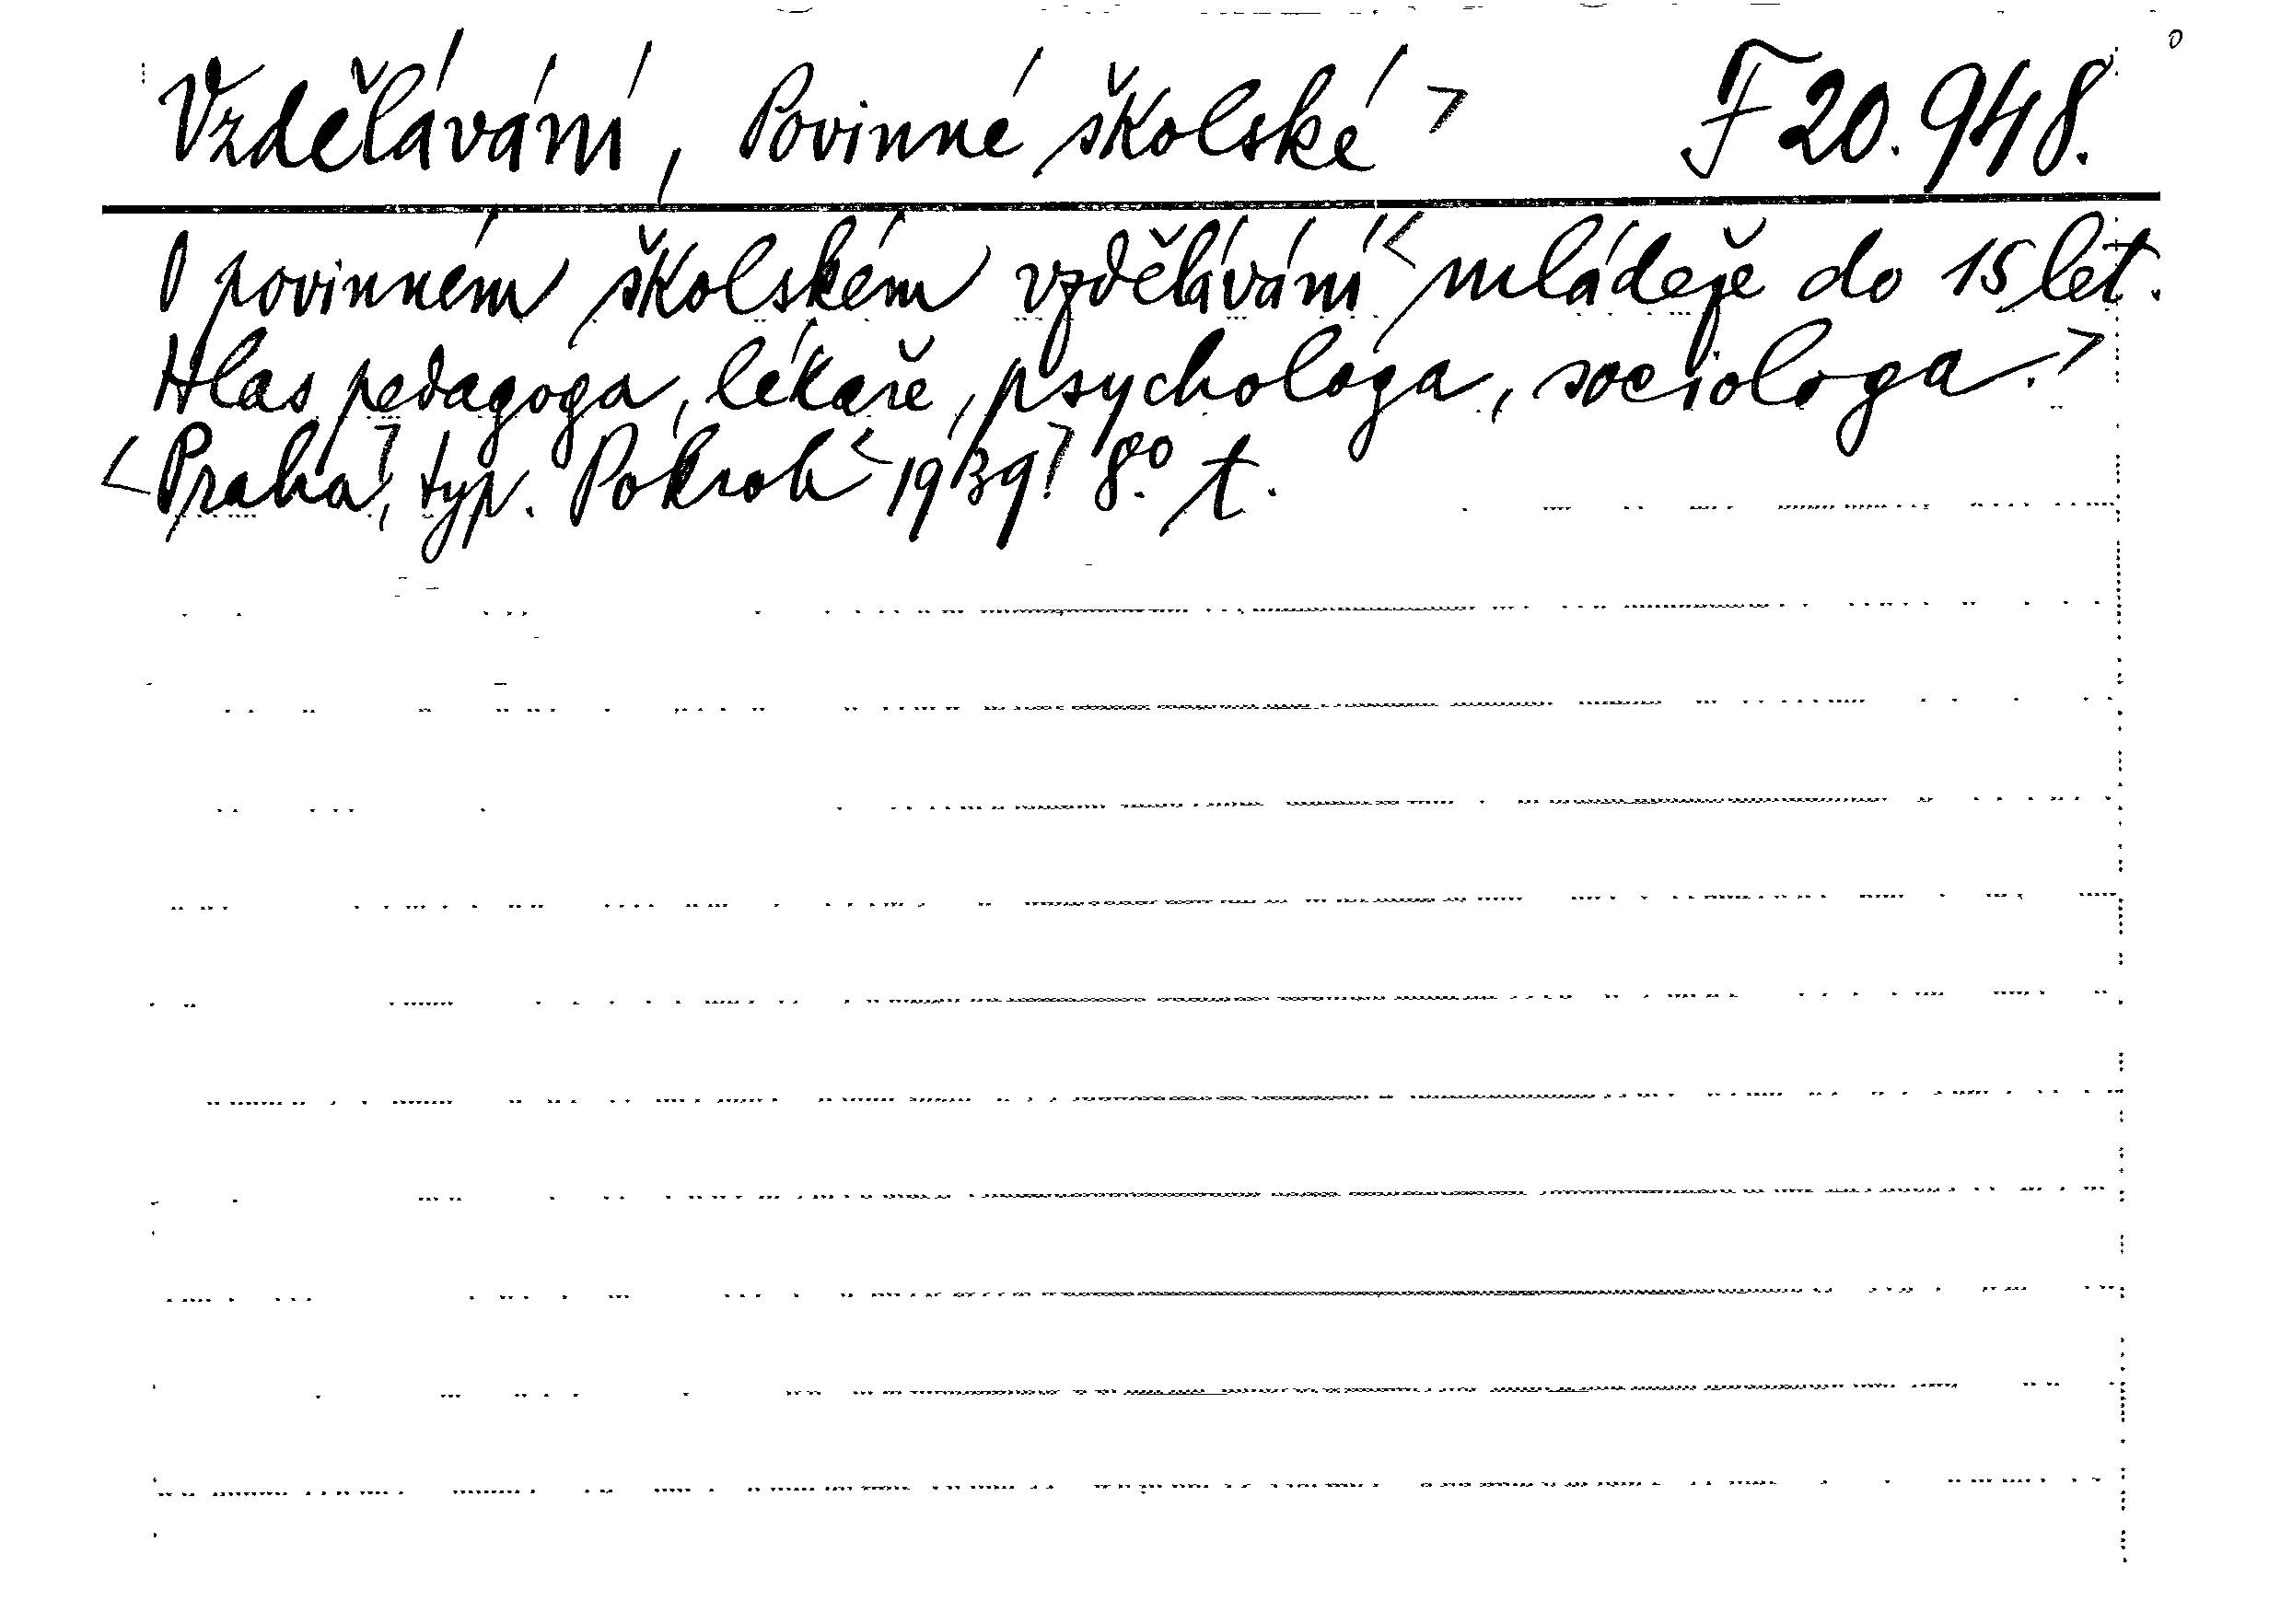 Vzdělávání, Povinné školské> F 20.948.
O povinném školském vzdělávání <mládeže do 15 let.
Hlas pedagoga, lékaře, psychologa, sociologa.>
<Praha>, typ. Pokrok <1939> 8.º t.